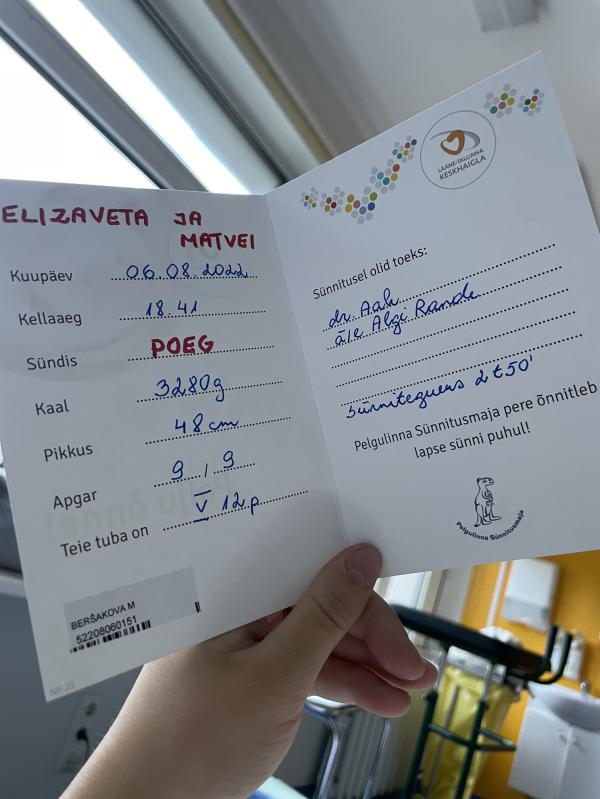 ELIZAVETA JA
MATVEI
Kuupäev 06.08.2022
Kellaaeg 18.41
Sündis POEG
Kaal 3280g
Pikkus 48 cm
Apgar 9 / 9
Teie tuba on V 12 p
BERŠAKOVA M
52208060151
NK-23
LÄÄNE-TALLINNA
KESKHAIGLA
Sünnitusel olid toeks:
dr. Aak
ä/e Algi Rande
sünnitegevus 2t 50'
Pelgulinna Sünnitusmaja pere õnnitleb
lapse sünni puhul!
Pelgulinna Sünnitusmaja